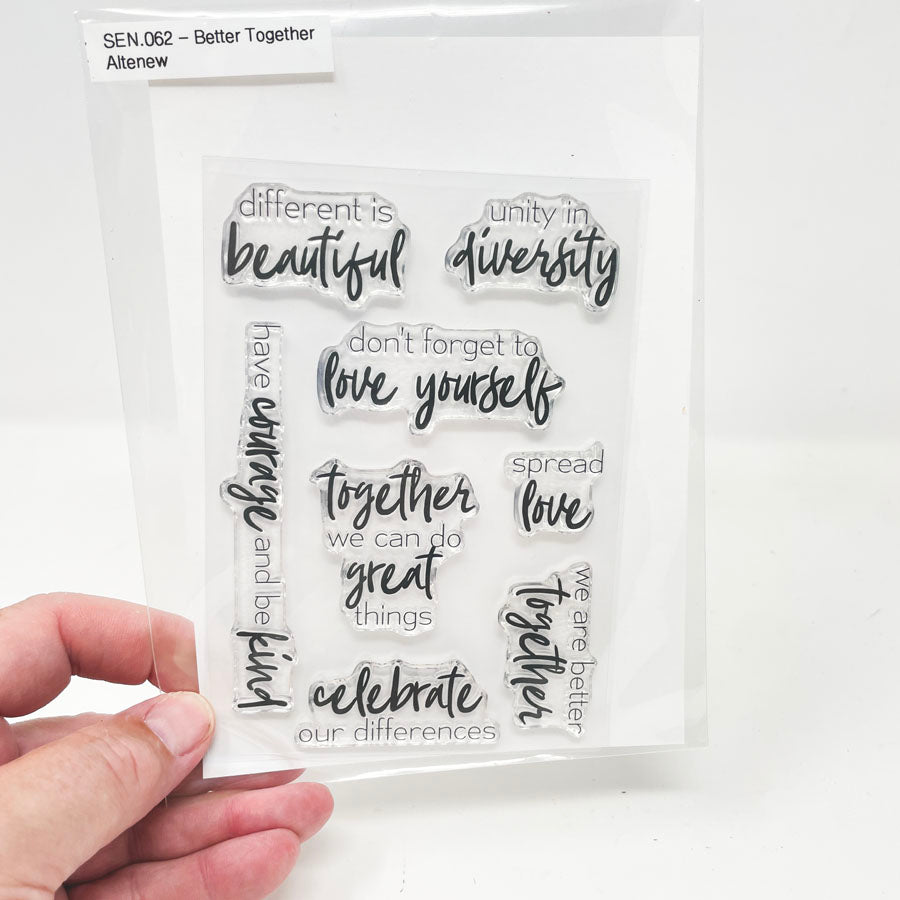 SEN.062 – Better Together
Altenew
different is
beautiful
unity in
diversity
have courage and be kind
don't forget to
love yourself
together
we can do
great
things
spread
love
we are better
together
celebrate
our differences